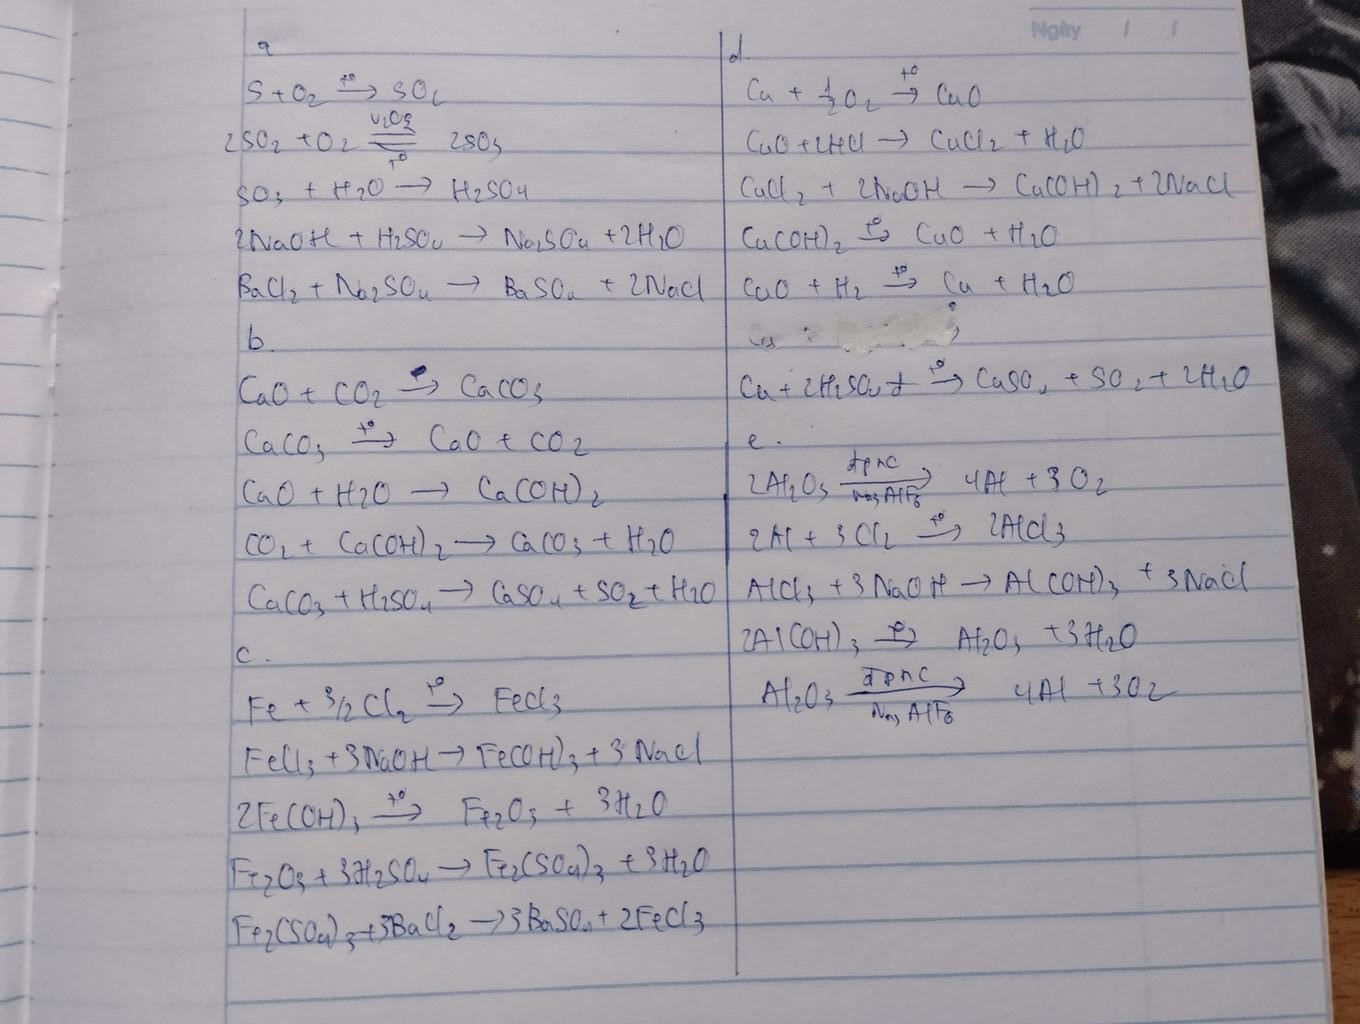 Ngày / /
a
S + O2 t°→ SO2
2SO2 + O2 V2O5⇌t° 2SO3
SO3 + H2O → H2SO4
2NaOH + H2SO4 → Na2SO4 + 2H2O
BaCl2 + Na2SO4 → BaSO4 + 2NaCl
b.
CaO + CO2 → CaCO3
CaCO3 t°→ CaO + CO2
CaO + H2O → Ca(OH)2
CO2 + Ca(OH)2 → CaCO3 + H2O
CaCO3 + H2SO4 → CaSO4 + SO2 + H2O
c.
Fe + 3/2 Cl2 t°→ FeCl3
FeCl3 + 3NaOH → Fe(OH)3 + 3NaCl
2Fe(OH)3 t°→ Fe2O3 + 3H2O
Fe2O3 + 3H2SO4 → Fe2(SO4)3 + 3H2O
Fe2(SO4)3 + 3BaCl2 → 3BaSO4 + 2FeCl3
d.
Cu + 1/2 O2 t°→ CuO
CuO + 2HCl → CuCl2 + H2O
CuCl2 + 2NaOH → Cu(OH)2 + 2NaCl
Cu(OH)2 t°→ CuO + H2O
CuO + H2 t°→ Cu + H2O
Cu
Cu + 2H2SO4đ t°→ CuSO4 + SO2 + 2H2O
e.
2Al2O3 đpnc→Na3AlF6 4Al + 3O2
2Al + 3Cl2 t°→ 2AlCl3
AlCl3 + 3NaOH → Al(OH)3 + 3NaCl
2Al(OH)3 t°→ Al2O3 + 3H2O
Al2O3 đpnc→Na3AlF6 4Al + 3O2